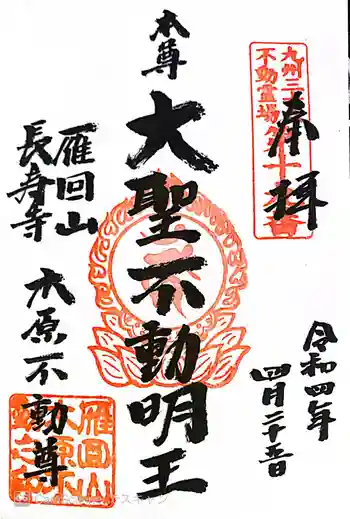 九州三十六
不動霊場第
奉拝
令和四年
四月二十五日
本尊
大聖不動明王
雁回山
長寿寺
木原不動尊
雁回山
木原不動